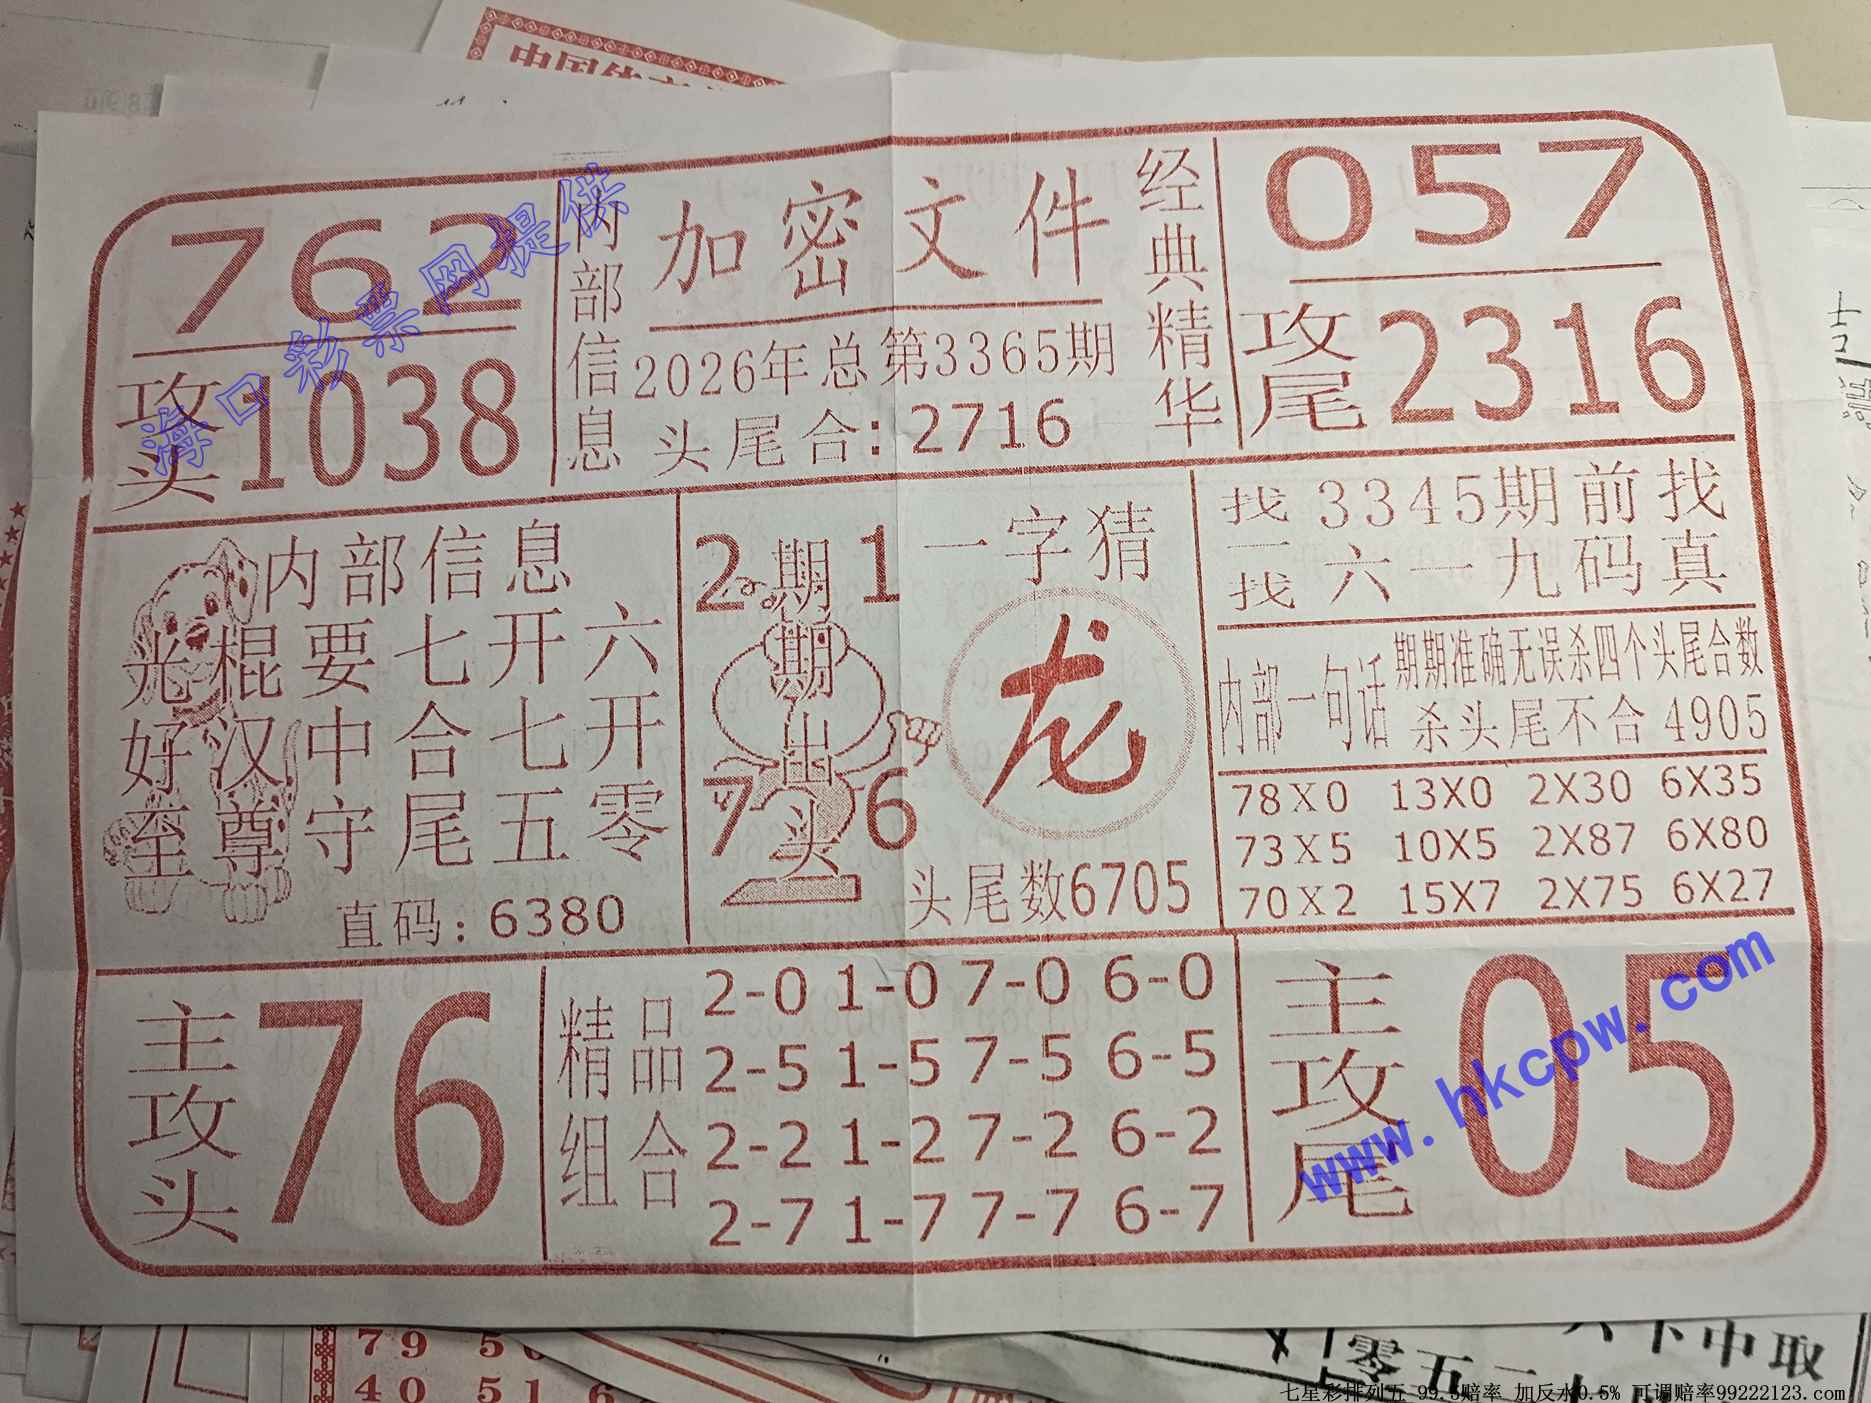 762
攻头 1038
内部信息
加密文件
2026年总第3365期
头尾合：2716
经典精华
057
攻尾 2316
内部信息
光棍要七开六
好汉中合七开
至尊守尾五零
直码：6380
2 1
期期出头
7 6
一字猜
龙
头尾数6705
找一找
3345期前找
六一九码真
内部一句话
期期准确无误杀四个头尾合数
杀头尾不合4905
78X0 13X0 2X30 6X35
73X5 10X5 2X87 6X80
70X2 15X7 2X75 6X27
主攻头 76
精品组合
2-0 1-0 7-0 6-0
2-5 1-5 7-5 6-5
2-2 1-2 7-2 6-2
2-7 1-7 7-7 6-7
主攻尾 05
海口彩票网提供
www.hkcpw.com
79
40 51 6
零五二
下中取
七星彩排列五 99.5赔率 加反水0.5% 可调赔率99222123.com